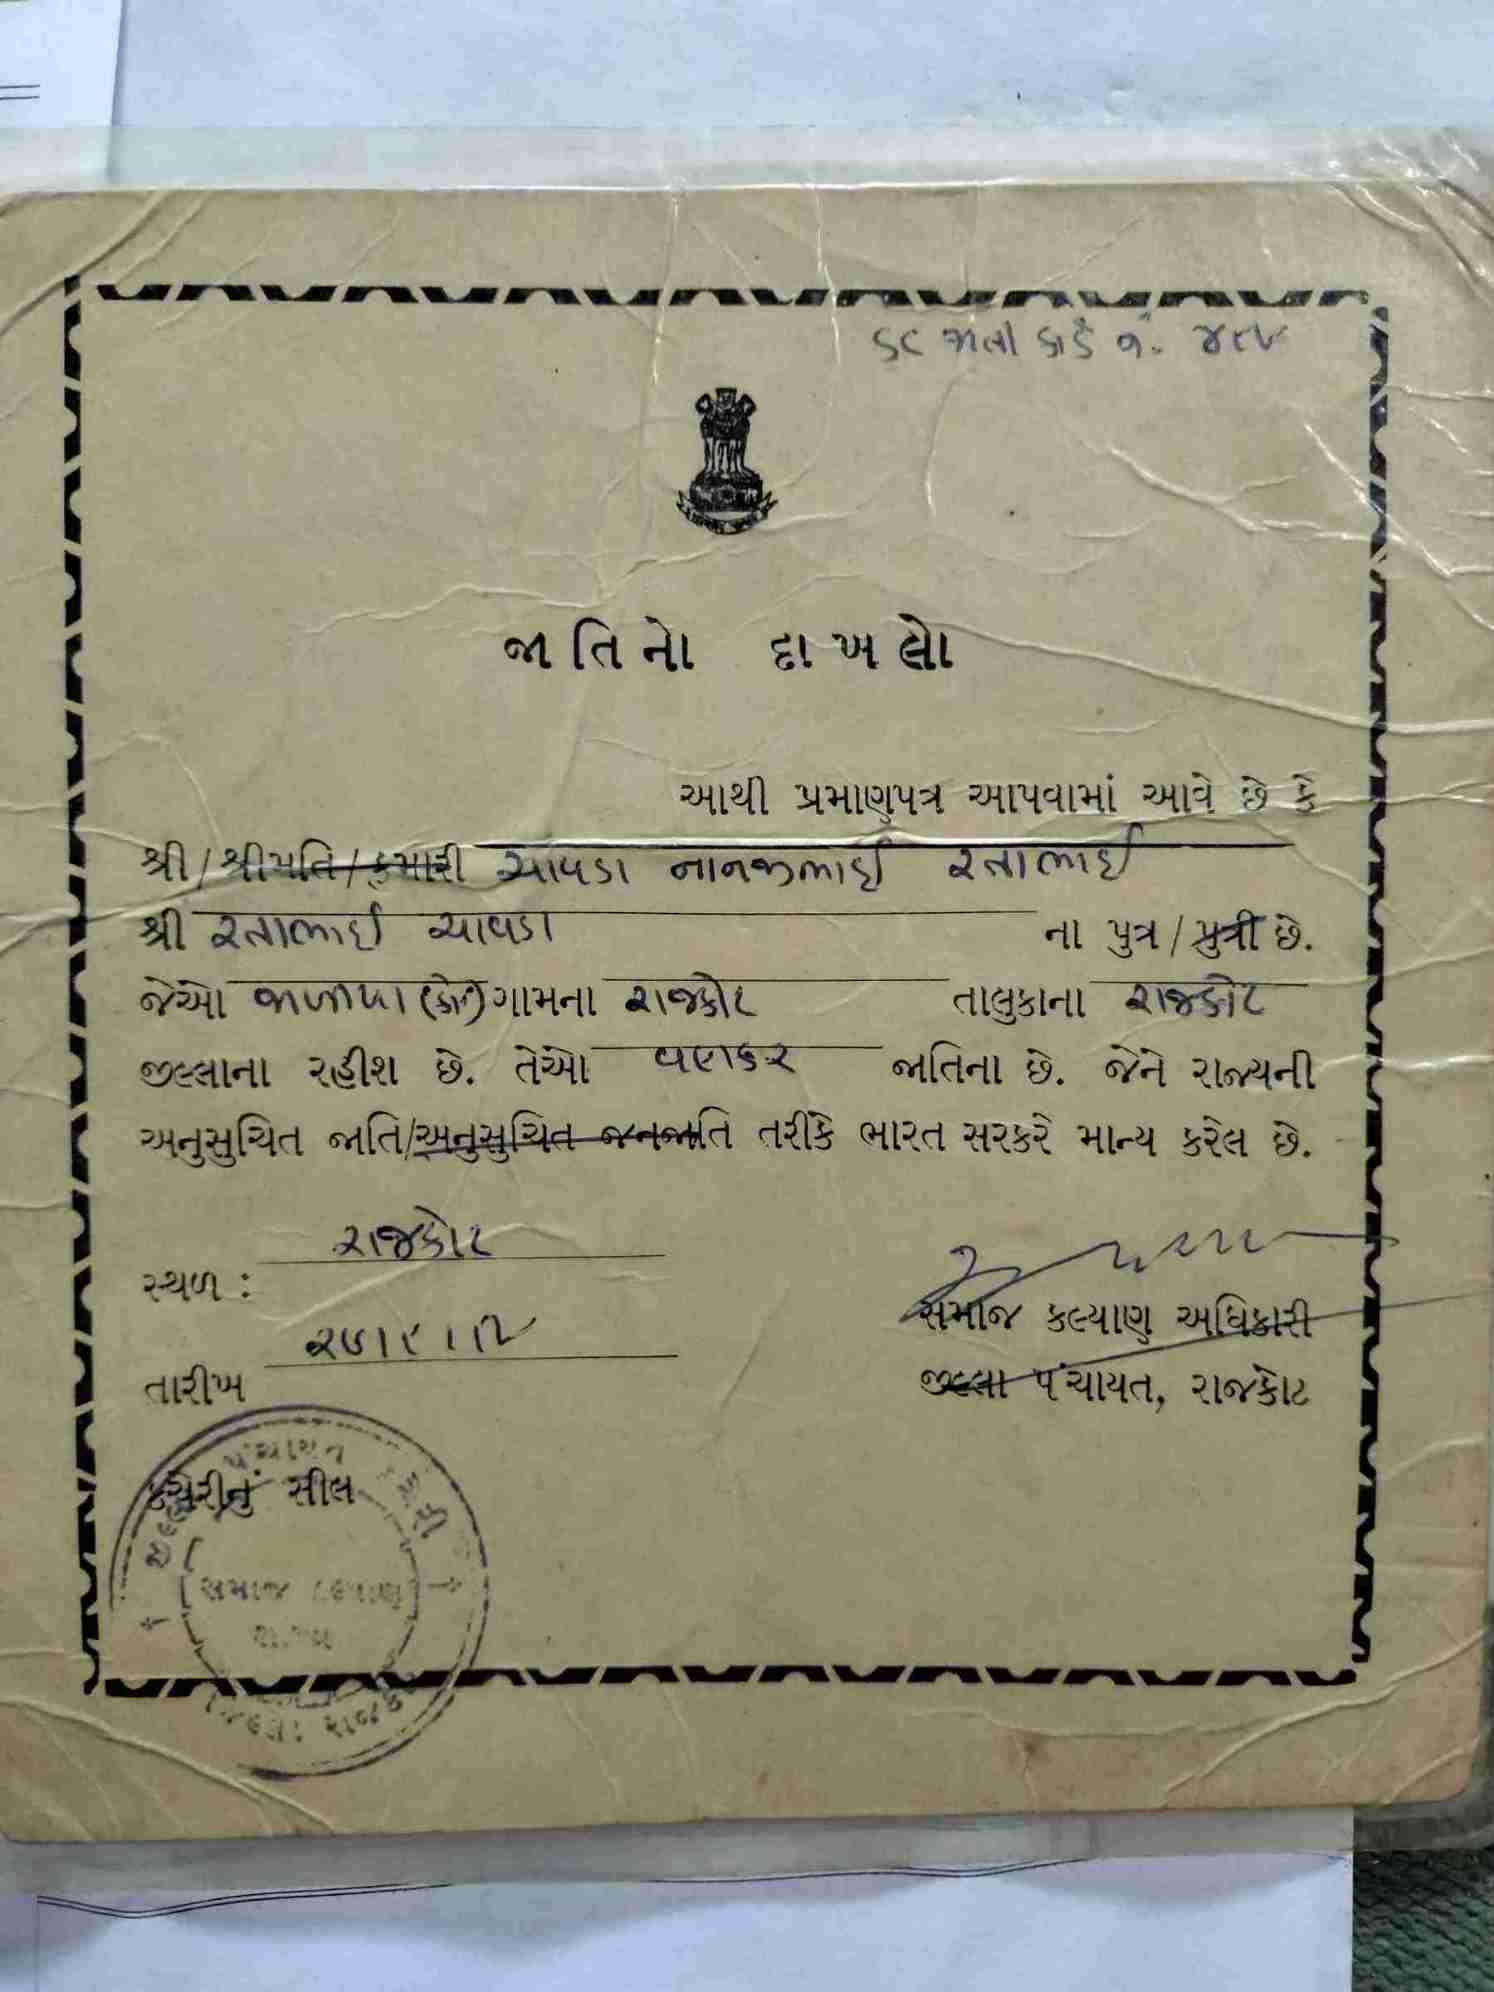 જાતિનો દાખલો
આથી પ્રમાણપત્ર આપવામાં આવે છે કે
શ્રી/શ્રીમતિ/કુમારી ચાવડા નાનજીભાઈ રતાભાઈ
શ્રી રતાભાઈ ચાવડા ના પુત્ર/પુત્રી છે.
જેઓ ગામના રાજકોટ તાલુકાના રાજકોટ
જીલ્લાના રહીશ છે. તેઓ વણકર જાતિના છે. જેને રાજ્યની
અનુસુચિત જાતિ/અનુસુચિત જનજાતિ તરીકે ભારત સરકારે માન્ય કરેલ છે.
રાજકોટ
સ્થળ :
તારીખ
સમાજ કલ્યાણ અધિકારી
જીલ્લા પંચાયત, રાજકોટ
કચેરીનું સીલ
પંચાયત
સમાજ